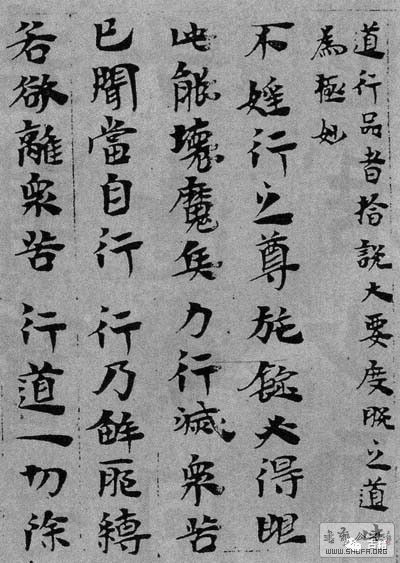 道行品者指說大要度脫之道
為極妙
不婬行之尊 施錠大得眼
此能壞魔兵 力行滅眾苦
已聞當自行 行乃解邪縛
若欲離眾苦 行道一切除
WWW.SHUFA.ORG